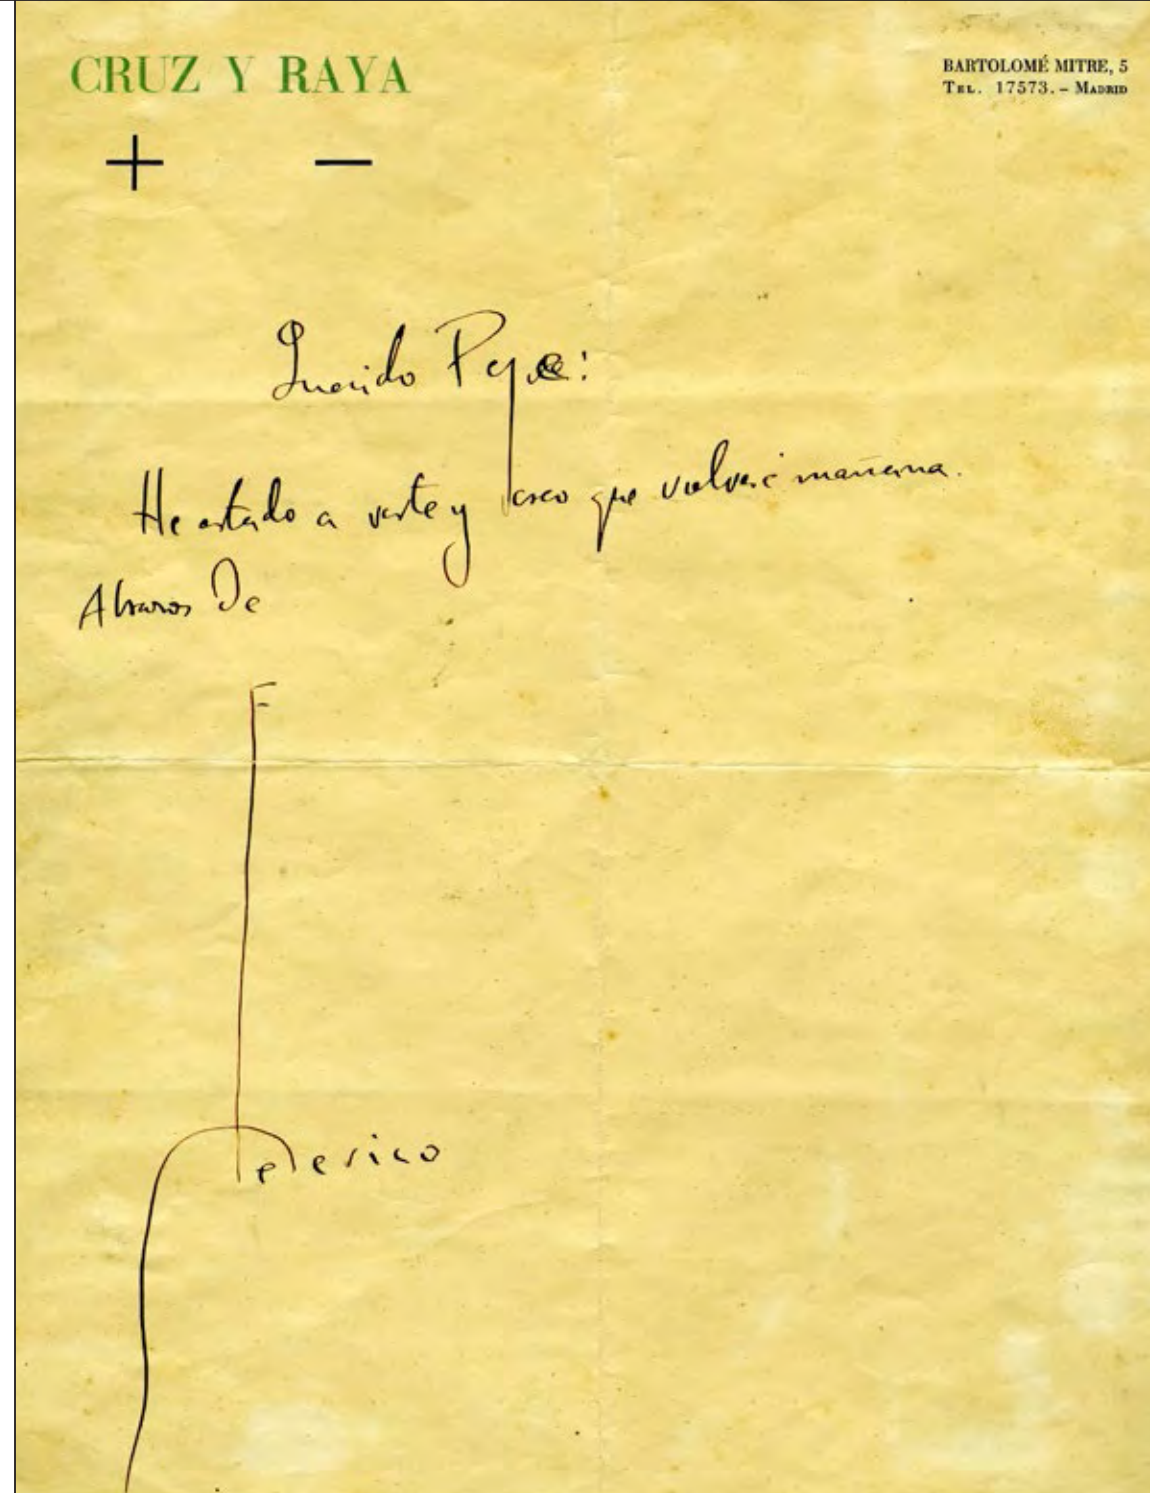 CRUZ Y RAYA
+ -
BARTOLOMÉ MITRE, 5
TEL. 17573. - MADRID
Querido Pepe:
He estado a verte y creo que volveré mañana.
Abrazos De
Federico